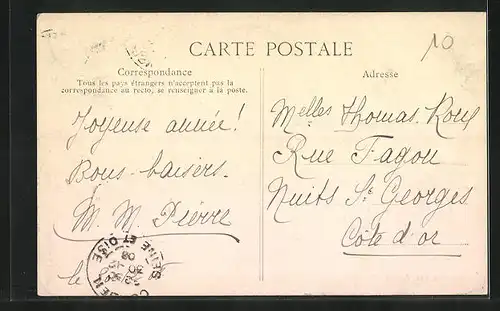 CARTE POSTALE
10
Correspondance
Tous les pays étrangers n'acceptent pas la
correspondance au recto, se renseigner à la poste.
Joyeuse année!
Bons baisers.
M. M. Pierre
le
Adresse
Melles Thomas Roux
Rue Fagon
Nuits St Georges
Côte d'or
CORBEIL
SEINE ET OISE